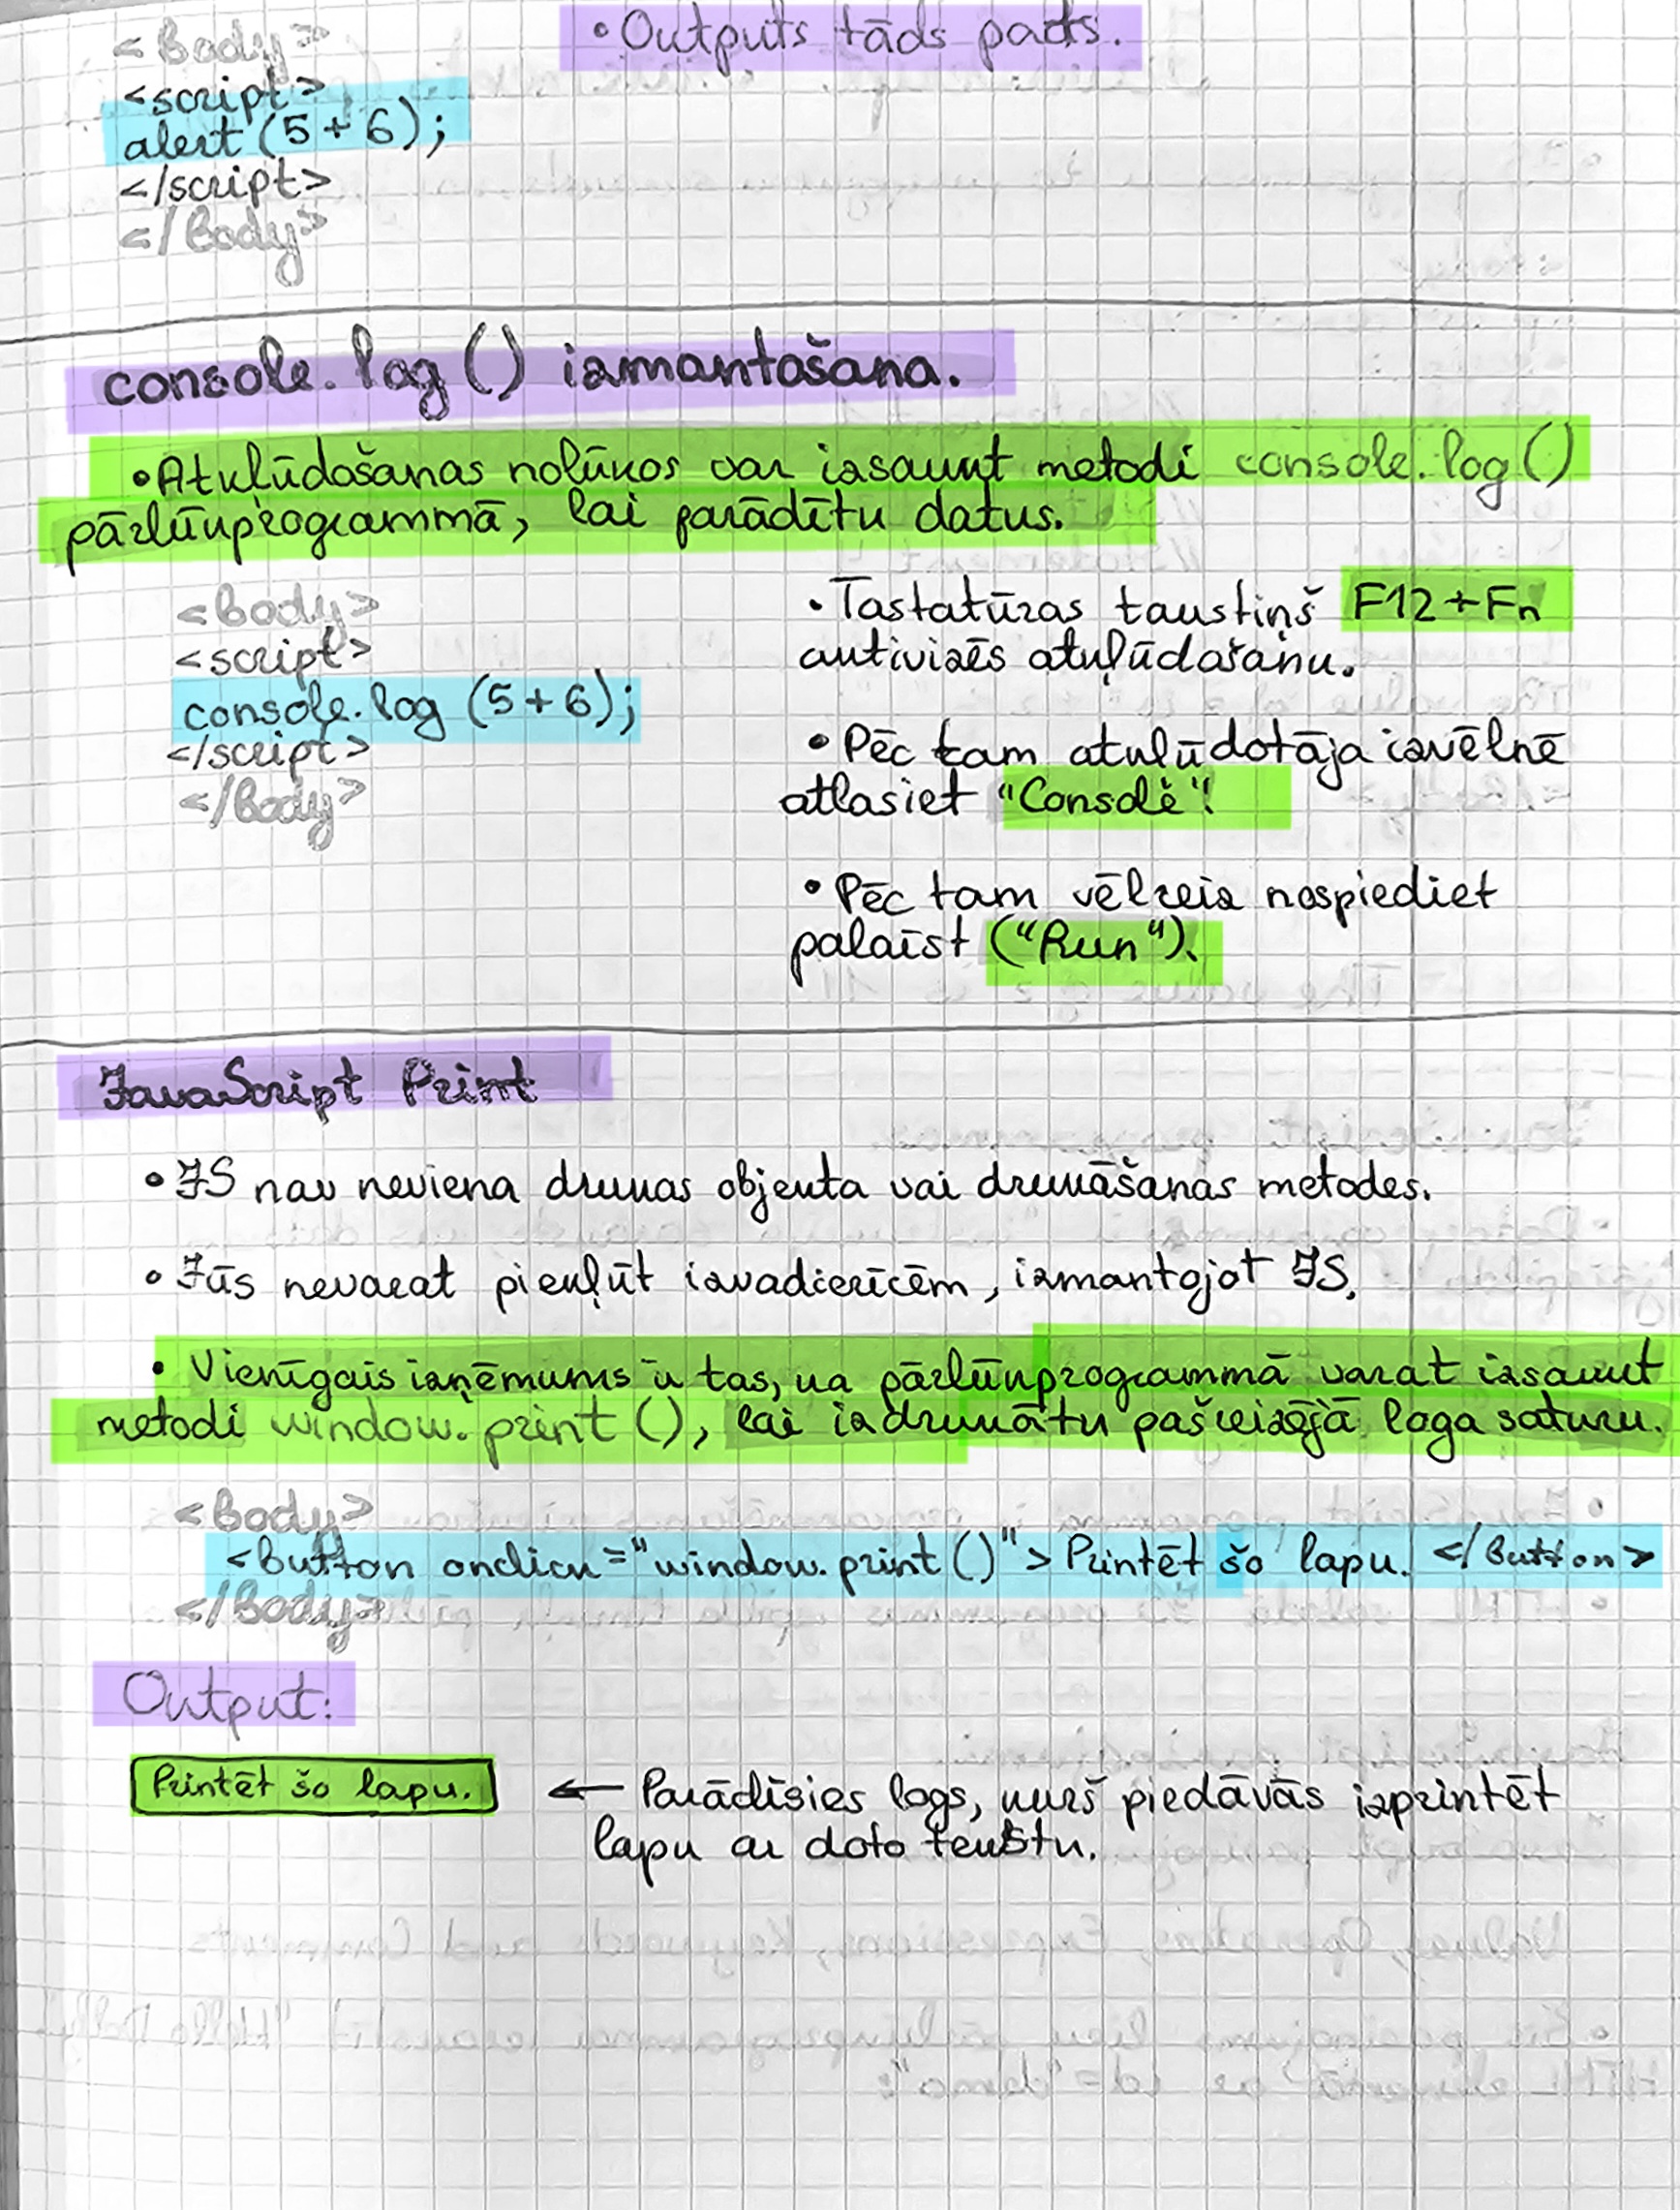 <Body>
• Outputs tāds pats.
<script>
alert (5 + 6);
</script>
</Body>
console.log () izmantošana.
• Atkļūdošanas nolūkos var izsaukt metodi console.log()
pārlūkprogrammā, lai parādītu datus.
<Body>
<script>
console.log (5 + 6);
</script>
</Body>
• Tastatūras taustiņš F12 + Fn
aktivizēs atkļūdošanu.
• Pēc tam atkļūdotāja izvēlnē
atlasiet "Console".
• Pēc tam vēlreiz nospiediet
palaist ("Run").
JavaScript Print
• JS nav neviena drukas objekta vai drukāšanas metodes.
• Jūs nevarat piekļūt izvadierīcēm, izmantojot JS.
• Vienīgais izņēmums ir tas, ka pārlūkprogrammā varat izsaukt
metodi window.print (), lai izdrukātu pašreizējā loga saturu.
<Body>
<Button onclick="window.print ()"> Printēt šo lapu. </Button>
</Body>
Output:
Printēt šo lapu.
← Parādīsies logs, kurš piedāvās izprintēt
lapu ar doto tekstu.